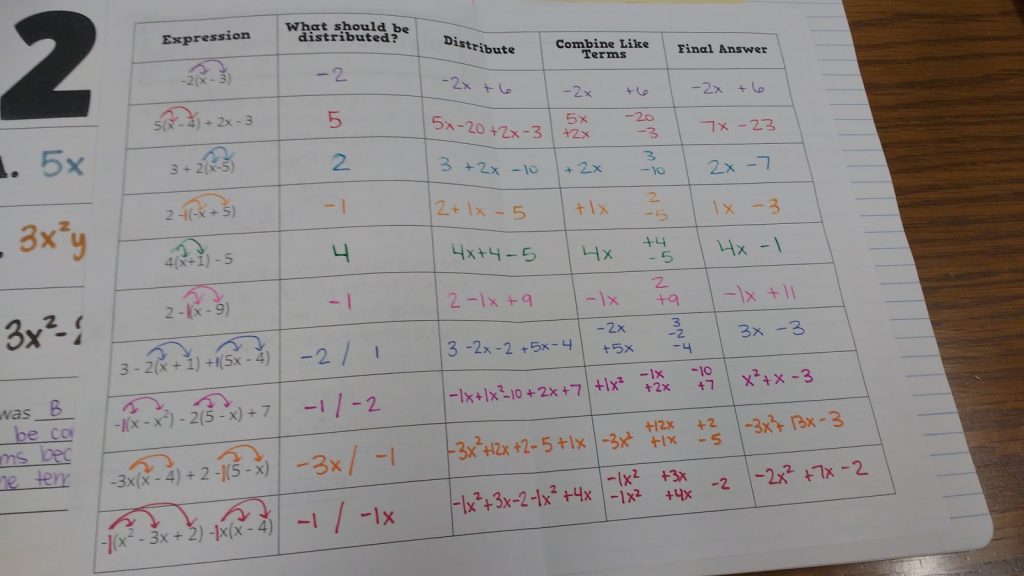 2
1. 5x
3x²y
3x²-
was B
be co
ms bec
ne tern
Expression What should be distributed? Distribute Combine Like Terms Final Answer
-2(x - 3) -2 -2x +6 -2x +6 -2x +6
5(x - 4) + 2x - 3 5 5x-20 +2x-3 5x -20 +2x -3 7x -23
3 + 2(x-5) 2 3 +2x -10 +2x 3 -10 2x -7
2 -1(-x + 5) -1 2+1x-5 +1x 2 -5 1x -3
4(x+1) - 5 4 4x+4-5 4x +4 -5 4x -1
2 -1(x - 9) -1 2-1x+9 -1x 2 +9 -1x +11
3 - 2(x + 1) +1(5x - 4) -2 / 1 3 -2x-2 +5x-4 -2x 3 +5x -2 -4 3x -3
-1(x - x²) - 2(5 - x) + 7 -1 / -2 -1x+1x²-10+2x+7 +1x² -1x -10 +2x +7 x²+x-3
-3x(x - 4) + 2 -1(5 - x) -3x / -1 -3x²+12x+2-5+1x -3x² +12x +2 +1x -5 -3x²+13x-3
-1(x² - 3x + 2) -1x(x - 4) -1 / -1x -1x²+3x-2-1x²+4x -1x² +3x -2 -1x² +4x -2x²+7x-2